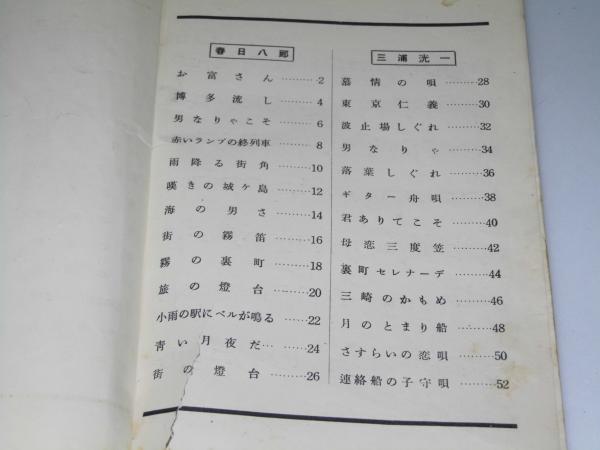 春日八郎
お富さん………2
博多流し………4
男なりゃこそ………6
赤いランプの終列車………8
雨降る街角………10
嘆きの城ケ島………12
海の男さ………14
街の霧笛………16
霧の裏町………18
旅の燈台………20
小雨の駅にベルが鳴る………22
青い月夜だ…………24
街の燈台…………26
三浦洸一
慕情の唄………28
東京仁義………30
波止場しぐれ………32
男なりゃ………34
落葉しぐれ………36
ギター舟唄………38
君ありてこそ………40
母恋三度笠………42
裏町セレナーデ………44
三崎のかもめ………46
月のとまり船………48
さすらいの恋唄………50
連絡船の子守唄………52